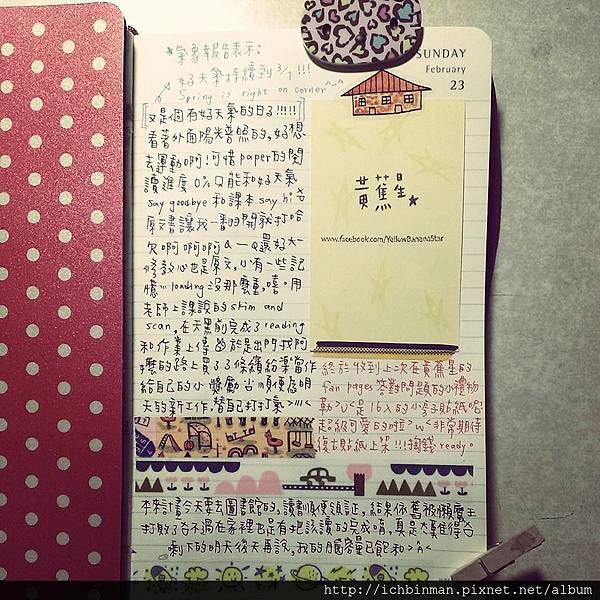 氣象報告表示:
好天氣持續到 3/1 !!!
Spring is right on corner ^_^
SUNDAY
February
23
又是個有好天氣的日子!!!!!
看著外面陽光普照的,好想
去運動啊!可惜 paper 的閱
讀進度 0% 只能和好天氣
say goodbye 和課本 say hi
原文書讓我一番的開就打哈
欠啊啊啊啊 Q_Q 還好大一
修教心也是原文,有一些記
憶 loading 沒那麼重,嘻。用
老師上課說的 skim and
scan,在天黑前完成了 reading
和作業上傳 於是出門找阿
嬤的路上買了3條繽紛菓當作
給自己的小獎勵 順便為明
天的新工作,替自己打打氣 >///<
黃蕉星
www.facebook.com/YellowBananaStar
終於收到上二次在黃蕉星的
fan pages 答對問題的小禮物
勒 >U< 是 16入的小李子貼紙呢
超級可愛的啦 >w< 非常期待
後占貼紙上架!!!掏錢 ready。
本來計畫今天要去圖書館的,讀劃順便領証,結果依舊被懶魔王
打敗了 不過在家裡也是有把該讀的完成唷,真是太難得
剩下的明天後天再說,我的腦容量已飽和 >^<
http://ichbinman.pixnet.net/album